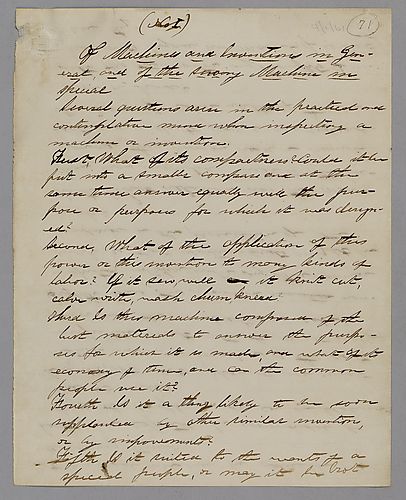 (No 1)
71
Of Machines and Inventions in Gen-
eral, and of the Sewing Machine in
special
Several questions arise in the practical and
contemplative mind when inspecting a
machine or invention.
First, What of its compactness? Could it be
put into a smaller compass and at the
same time answer equally well the pur-
pose or purposes for which it was design-
ed?
Second, What of the application of this
power or this invention to many kinds of
labor? If it sew well it knit cut,
wash churn knead
Third Is this machine composed of the
best materials to answer the purpo-
ses for which it is made, and what of its
economy of time, and can the common
people use it?
Fourth Is it a thing likely to be soon
supplanted by other similar invention,
or by improvement?
Fifth Is it suited to the wants of a
special people, or may it be